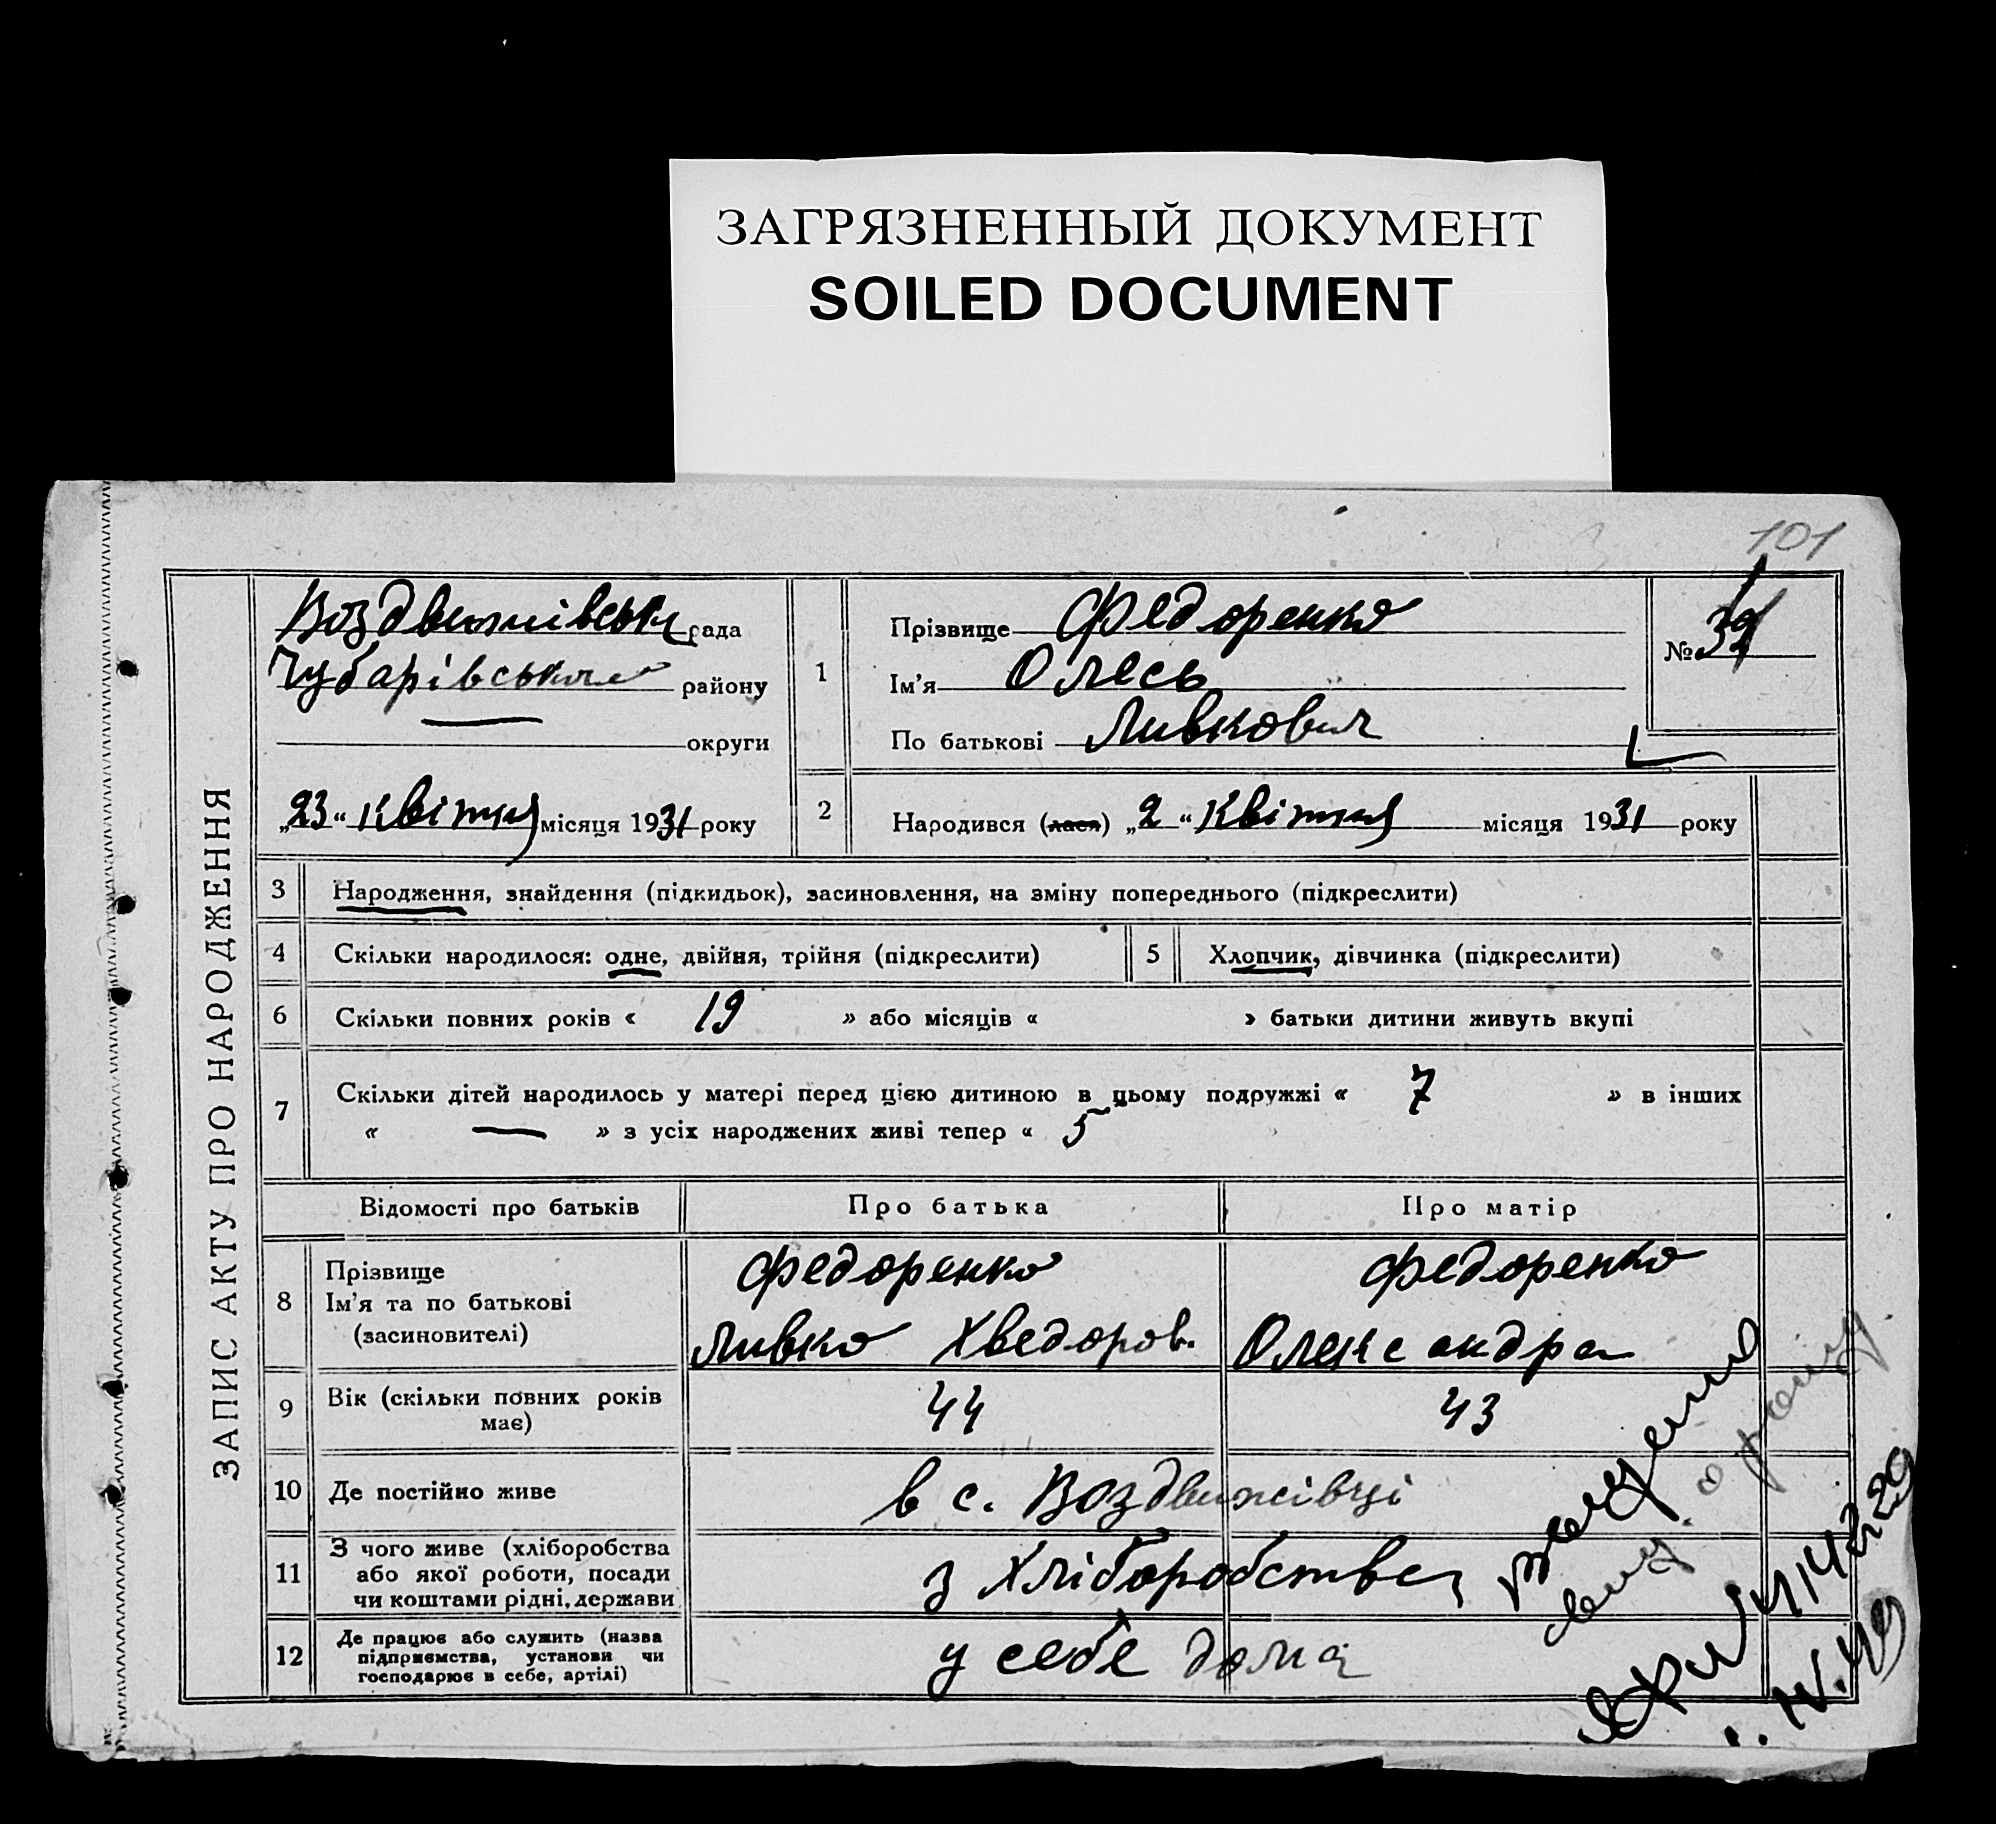 ЗАГРЯЗНЕННЫЙ ДОКУМЕНТ
SOILED DOCUMENT
101
ЗАПИС АКТУ ПРО НАРОДЖЕННЯ
Воздвижівська рада
Чубарівського району
— округи
„23“ квітня місяця 1931 року
1 Прізвище Федоренко
Ім'я Олесь
По батькові Ливкович
№ 39
2 Народився (лася) „2“ квітня місяця 1931 року
3 Народження, знайдення (підкидьок), засиновлення, на зміну попереднього (підкреслити)
4 Скільки народилося: одне, двійня, трійня (підкреслити) 5 Хлопчик, дівчинка (підкреслити)
6 Скільки повних років « 19 » або місяців « » батьки дитини живуть вкупі
7 Скільки дітей народилось у матері перед цією дитиною в цьому подружжі « 7 » в інших
« — » з усіх народжених живі тепер « 5
Відомості про батьків Про батька Про матір
8 Прізвище
Ім'я та по батькові
(засиновителі)
Федоренко
Ливко Хведоров.
Федоренко
Олександра
9 Вік (скільки повних років
має)
44 43
10 Де постійно живе в с. Воздвижівці
11 З чого живе (хліборобства
або якої роботи, посади
чи коштами рідні, держави
з хліборобства
12 Де працює або служить (назва
підприємства, установи чи
господарює в себе, артілі)
у себе дома